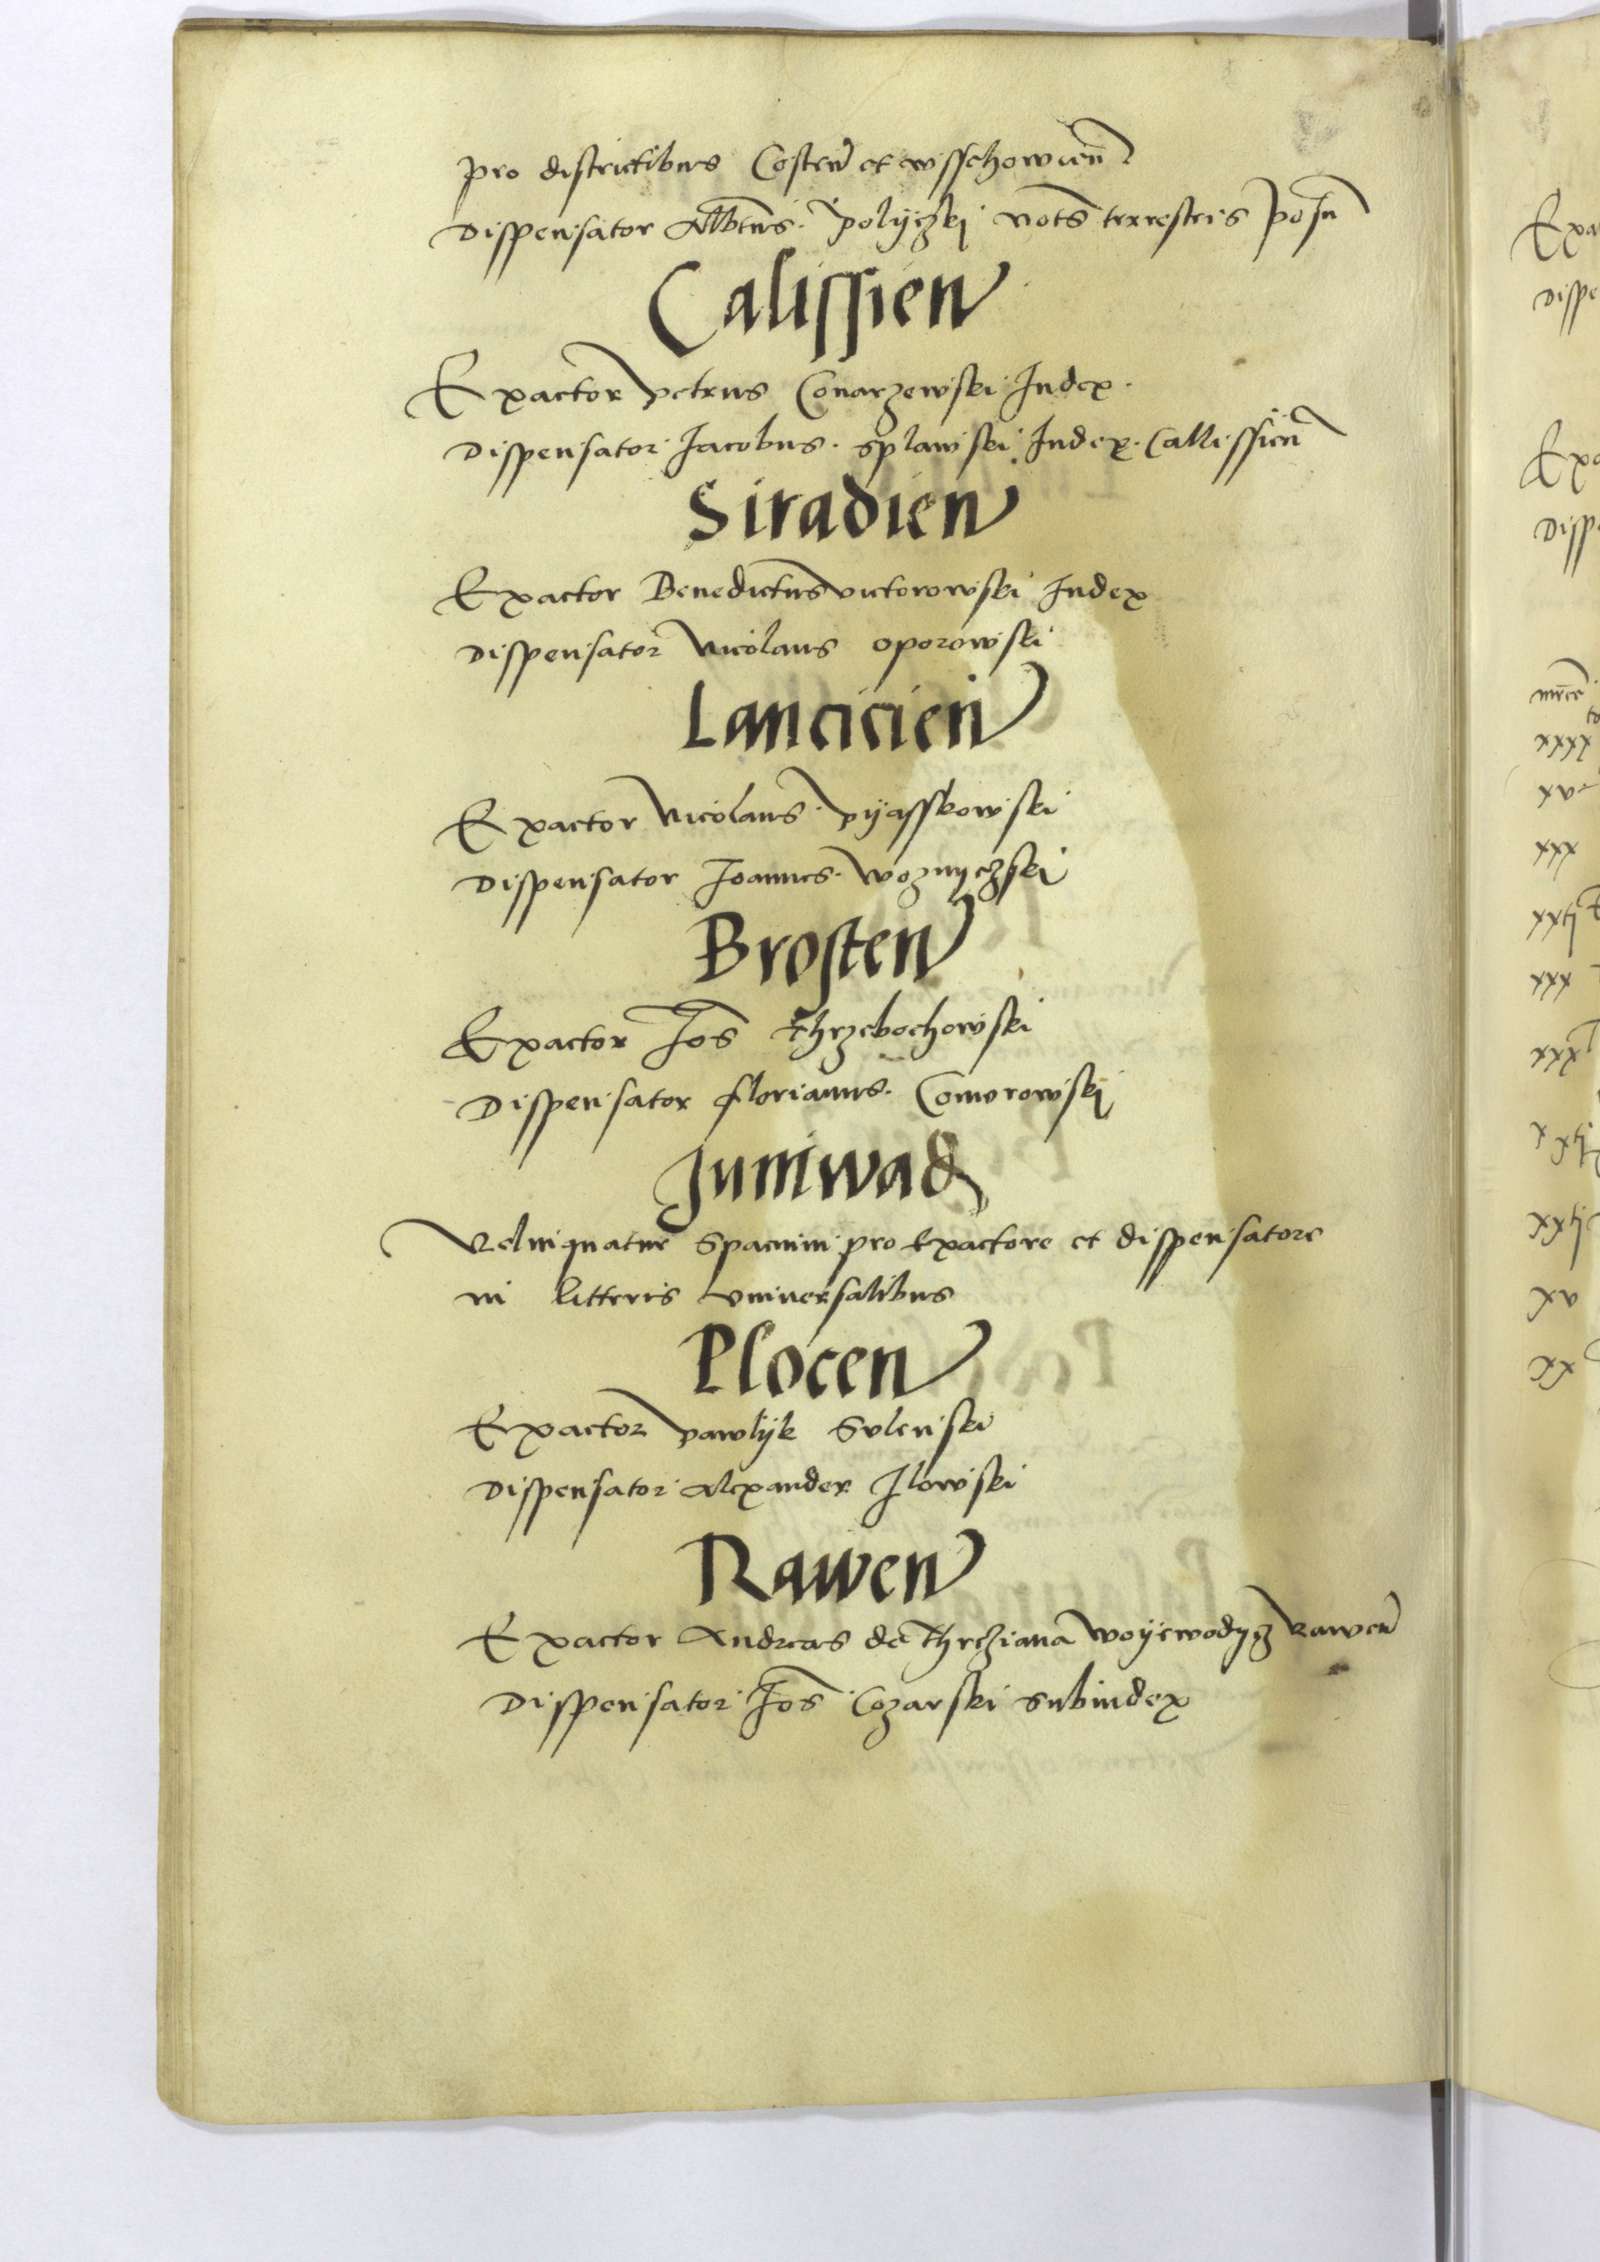 pro districtibus Costen et wsschowien
Dispensator Albtus polyczki nots terrestris Posn
Calissien
Exactor petrus Conarzewski Iudex
Dispensator Iacobus splawski Iudex Callissien
Siradien
Exactor Benedictus victorowski Iudex
Dispensator Nicolaus oporowski
Lancicien
Exactor Nicolaus pyasskowski
Dispensator Ioannes woznyczski
Brosten
Exactor Ios thrzebochowski
Dispensator florianus Comorowski
Juniwlad
Relinquatur Spacium pro Exactore et dispensatore
in litteris vniuersalibus
Plocen
Exactor pawlyk Sulenski
Dispensator Alexander Ilowski
Rawen
Exactor Andreas de woyewodycz Rawen
Dispensator Ios Cozarski Subiudex
Exa
Dispe
Exa
Disp
xxxx
xv
xxx
xxij
xxx
xxx
xxij
xv
xx